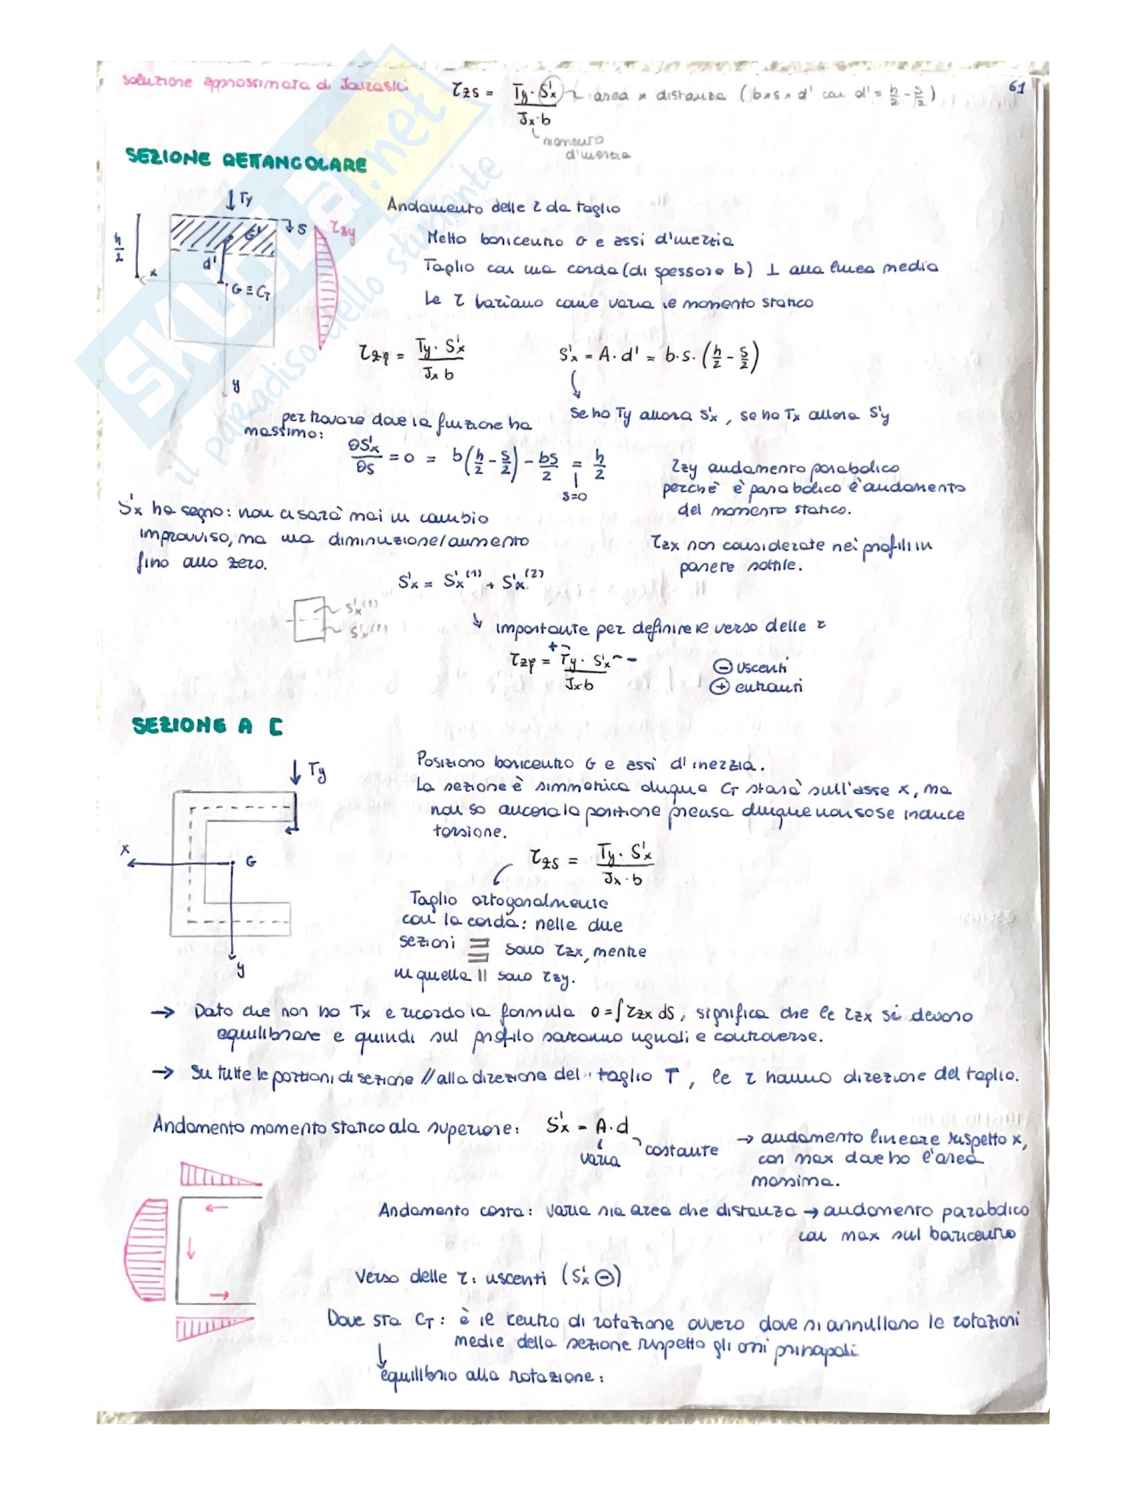 soluzione approssimata di Jouraski
τzs = Ty · S'x / Jx · b
area x distanza (b×s×d' con d' = h/2 - s/2)
61
momento
d'inerzia
SEZIONE RETTANGOLARE
Ty
S
τzy
h/2
G'
d'
x
G ≡ CT
y
Andamento delle τ da taglio
Metto baricentro G e assi d'inerzia
Taglio con una corda (di spessore b) ⊥ alla linea media
Le τ variano come varia il momento statico
τzy = Ty · S'x / Jx b
S'x = A · d' = b · s · (h/2 - s/2)
Se ho Ty allora S'x, se ho Tx allora S'y
per trovare dove la funzione ha
massimo:
∂S'x/∂s = 0 = b(h/2 - s/2) - bs/2 = h/2
s=0
τzy andamento parabolico
perché è parabolico l'andamento
del momento statico.
S'x ha segno: non ci sarà mai un cambio
improvviso, ma una diminuzione/aumento
fino allo zero.
τzx non considerate nei profili in
parete sottile.
S'x = S'x(1) + S'x(2)
S'x(1)
S'x(2)
importante per definire il verso delle τ
τzy = Ty · S'x / Jx b
+ -
⊖ uscenti
⊕ entranti
SEZIONE A C
Ty
x
G
y
Posiziono baricentro G e assi d'inerzia.
La sezione è simmetrica dunque CT starà sull'asse x, ma
non so ancora la posizione precisa dunque non so se induce
torsione.
τzs = Ty · S'x / Jx · b
Taglio ortogonalmente
con la corda: nelle due
sezioni = sono τzx, mentre
in quella || sono τzy.
→ Dato che non ho Tx e ricordo la formula 0 = ∫ τzx ds, significa che le τzx si devono
equilibrare e quindi sul profilo saranno uguali e controverse.
→ Su tutte le porzioni di sezione // alla direzione del taglio T, le τ hanno direzione del taglio.
Andamento momento statico ala superiore: S'x = A · d
varia
costante
→ andamento lineare rispetto x,
con max dove ho l'area
massima.
Andamento costa: varia sia area che distanza → andamento parabolico
con max sul baricentro
Verso delle τ: uscenti (S'x ⊖)
Dove sta CT: è il centro di rotazione ovvero dove si annullano le rotazioni
medie della sezione rispetto gli assi principali
equilibrio alla rotazione:
SKUOLA.net
il paradiso dello studente